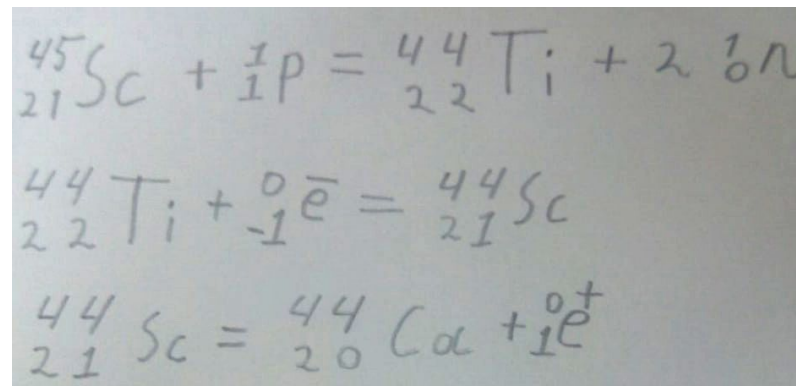 ⁴⁵₂₁Sc + ¹₁p = ⁴⁴₂₂Ti + 2 ¹₀n
⁴⁴₂₂Ti + ⁰₋₁e⁻ = ⁴⁴₂₁Sc
⁴⁴₂₁Sc = ⁴⁴₂₀Ca + ⁰₁e⁺